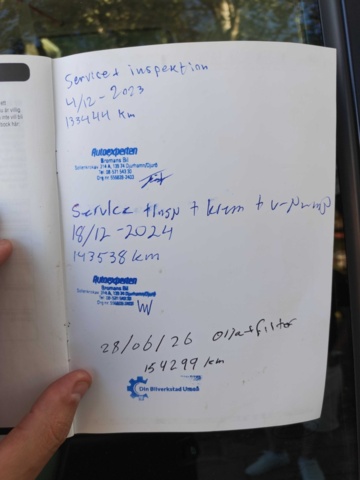 Service + inspektion
4/12-2023
133444 km
Autoexperten
Bromans Bil
Service +Insp + krem + v-pump
18/12-2024
143538 km
Autoexperten
Bromans Bil
28/06/26 Oljaofilter
154299 km
Din Bilverkstad Umeå